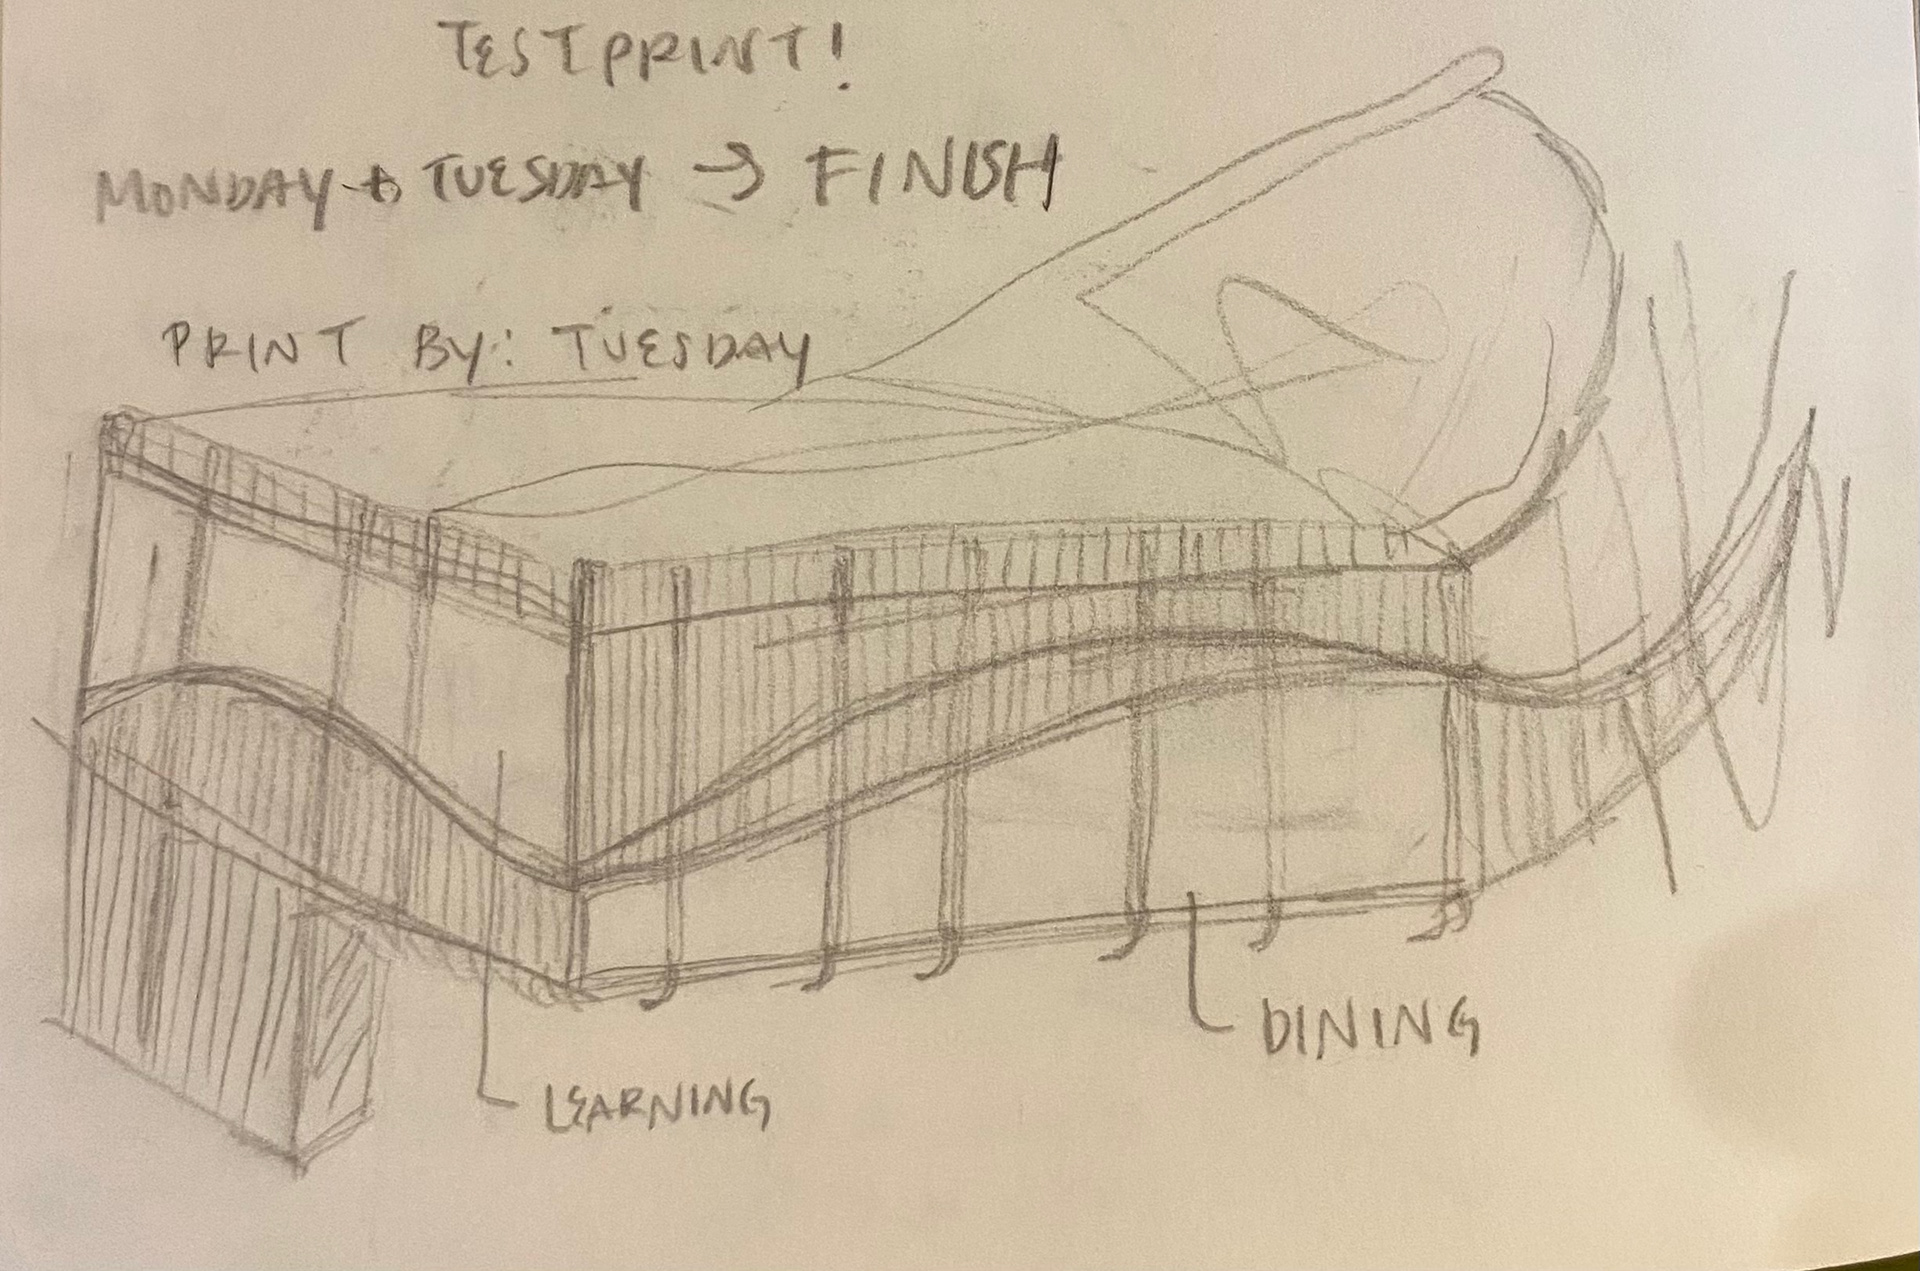 TESTPRINT!
MONDAY + TUESDAY → FINISH
PRINT BY: TUESDAY
DINING
LEARNING